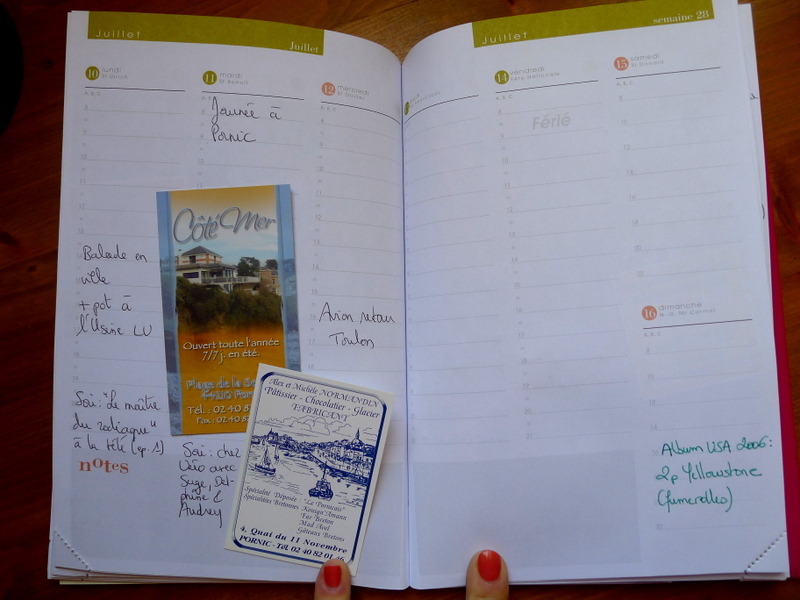 Juillet
Juillet
10 lundi
A.B.C.
Balade en
ville
+ pot à
l'Usine LU
Soi: "Le maître
du zodiaque"
à la télé (ep. 1)
notes
11 mardi
A.B.C.
Jounée à
Pornic
Soi : chez
avec
&
Audrey
12 mercredi
A.B.C.
Avion retour
Toulon
Côté Mer
Ouvert toute l'année
7/7 j. en été.
Plage de la
44210
Tél. : 02 40 82
Fax : 02 40 82
Alex et Michèle NORMANDIN
Pâtissier - Chocolatier - Glacier
FABRICANT
Spécialité Déposée : "Le Pornicais"
Spécialités Bretonnes : Kouign'Amann
Far Breton
Mad Avel
Gâteaux Bretons
4, Quai du 11 Novembre
PORNIC - Tél. 02 40 82 01
Juillet
semaine 28
14 vendredi
Fête Nationale
A.B.C.
Férié
15 samedi
A.B.C.
16 dimanche
N.-D. Mt Carmel
Album USA 2006:
2p Yellowstone
(fumerolles)